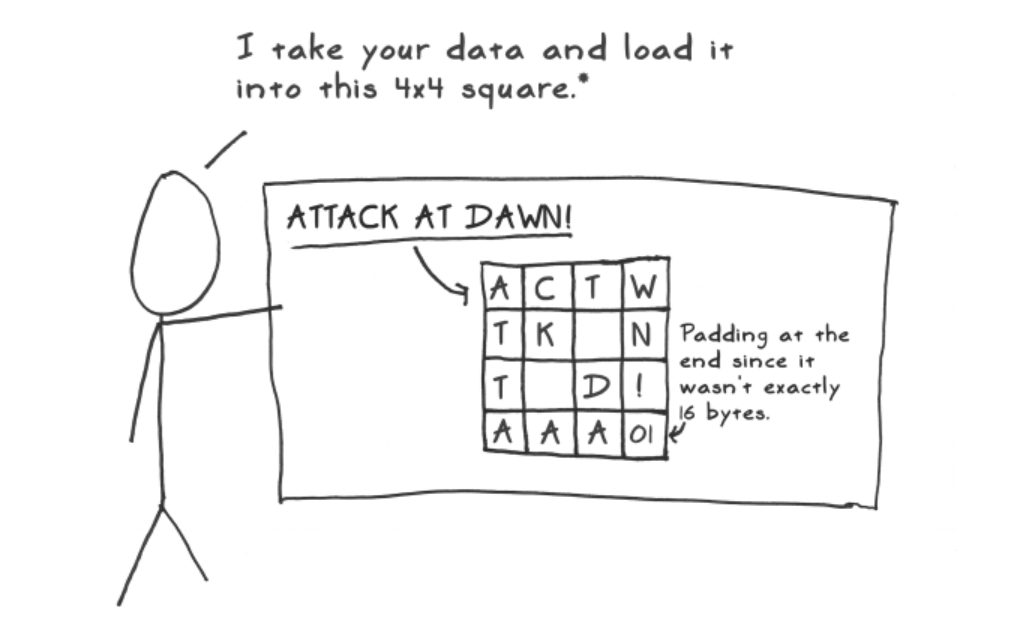 I take your data and load it
into this 4x4 square.*
ATTACK AT DAWN!
A C T W
T K N
T D !
A A A 01
Padding at the
end since it
wasn't exactly
16 bytes.